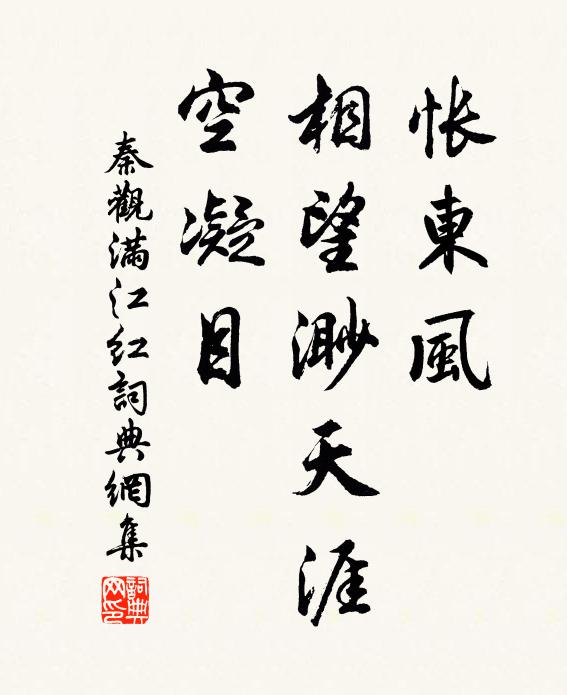 悵東風
相望渺天涯
空凝目
秦觀滿江紅詞典網集
詞典网印